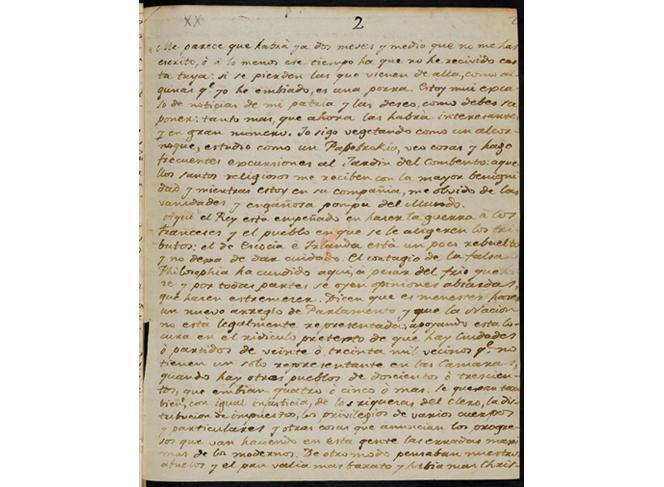 XX
2
Me parece que habrá ya dos meses y medio que no me has
escrito, ó á lo menos ese tiempo ha que no he recivido car-
ta tuya: si se pierden las que vienen de alla, como al-
gunas qe. yo he embiado, es una porra. Estoy mui esca-
so de noticias de mi patria y las deseo, como debes su-
poner: tanto mas, que ahora las habrá interesantes
y en gran numero. Io sigo vegetando como un alcor-
noque, estudio como un Papebrokio, veo cosas y hago
frecuentes excursiones al Jardin del Combento: aque-
llos santos religiosos me reciben con la mayor benigni-
dad y mientras estoy en su compañia, me olvido de las
vanidades y engañosa pompa del Mundo.
Aqui el Rey está empeñado en hacer la guerra á los
franceses y el pueblo en que se le aligeren los tri-
butos: el de Escocia é Irlanda está un poco rebuelto
y no dexa de dar cuidado. El contagio de la falsa
Philosophia ha cundido aqui, á pesar del frio que ha-
ce y por todas partes se oyen opiniones absurdas,
que hacen estremecer. Dicen que es menester hacer
un nuevo arreglo de Parlamento y que la Nacion
no está legalmente representada, apoyando esta lo-
cura en el ridiculo pretexto de que hay Ciudades
ó partidos de veinte ó treinta mil vecinos qe. no
tienen un solo representante en las Camaras,
quando hay otros pueblos de doscientos ó trescien-
tos, que embian quatro ó cinco ó mas. Se quexan tam-
bien, con igual injusticia, de las riquezas del clero, la dis-
tribucion de impuestos, los privilegios de varios cuerpos
y particulares y otras cosas que anuncian los progre-
sos que van haciendo en esta gente las erradas maxi-
mas de los modernos. De otro modo pensaban nuestros
abuelos y el pan valia mas barato y habia mas Christ-